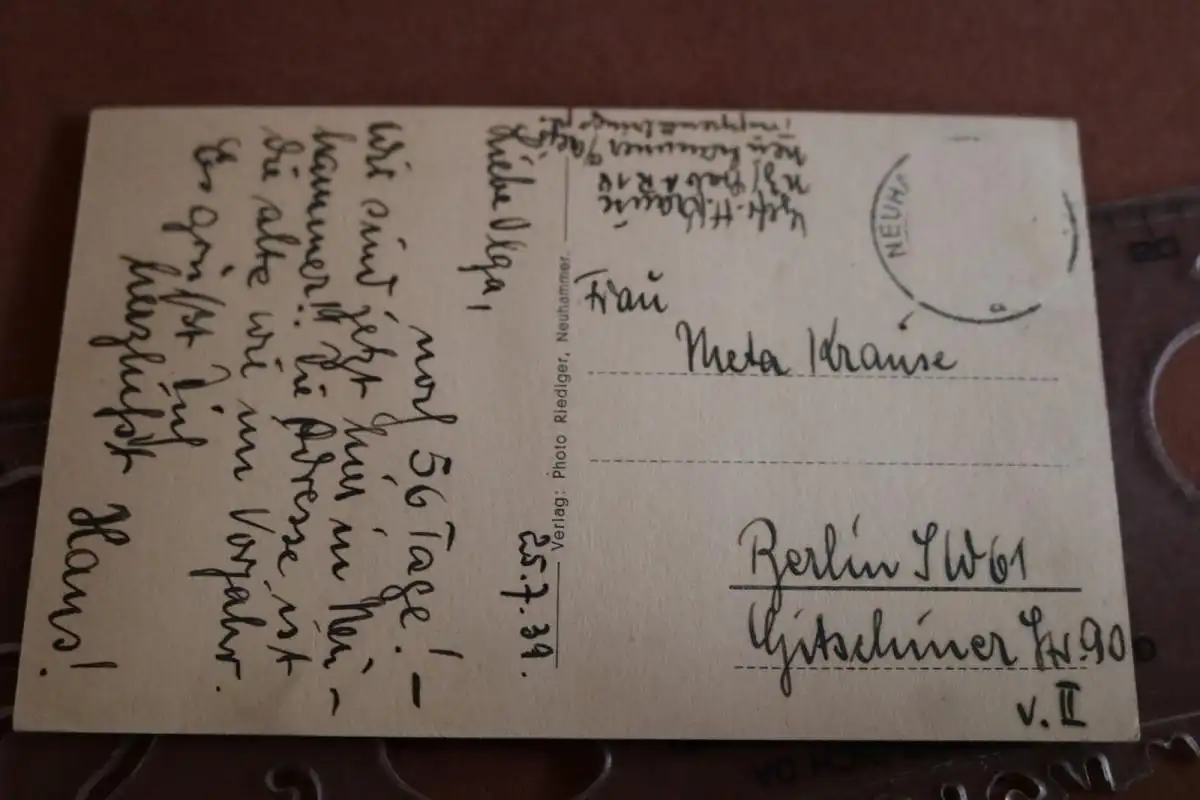 25.7.39.
Liebe Olga,
noch 56 Tage! –
Wir sind jetzt hier in Neu-
hammer! Die Adresse ist
die alte wie im Vorjahr.
Es grüßt Dich
herzlichst
Hans!
Verlag: Photo Riediger, Neuhammer.
Gefr. H. Krause
Neuhammer
NEUH
Frau
Meta Krause
Berlin SW61
Gitschiner Str. 90
v. II